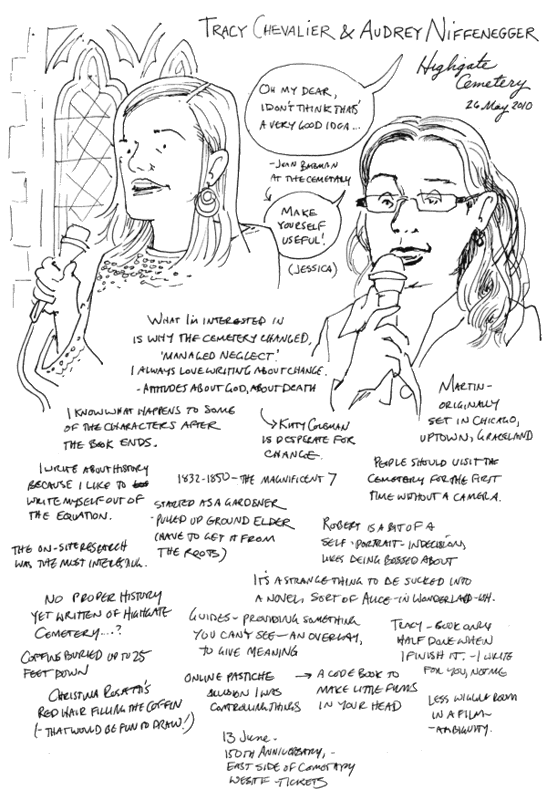 TRACY CHEVALIER & AUDREY NIFFENEGGER
Highgate
Cemetery
26 May 2010
OH MY DEAR,
I DON'T THINK THAT'S
A VERY GOOD IDEA...
- JEAN
AT THE CEMETARY
MAKE
YOURSELF
USEFUL!
(JESSICA)
WHAT I'M INTERESTED IN
IS WHY THE CEMETERY CHANGED,
'MANAGED NEGLECT.'
I ALWAYS LOVE WRITING ABOUT CHANGE.
- ATTITUDES ABOUT GOD, ABOUT DEATH
→ KITTY COLEMAN
IS DESPERATE FOR
CHANGE.
MARTIN-
ORIGINALLY
SET IN CHICAGO,
UPTOWN, GRACELAND
I KNOW WHAT HAPPENS TO SOME
OF THE CHARACTERS AFTER
THE BOOK ENDS.
PEOPLE SHOULD VISIT THE
CEMETERY FOR THE FIRST
TIME WITHOUT A CAMERA.
I WRITE ABOUT HISTORY
BECAUSE I LIKE TO
WRITE MYSELF OUT OF
THE EQUATION.
1832-1850 - THE MAGNIFICENT 7
STARTED AS A GARDENER
- PULLED UP GROUND ELDER
(HAVE TO GET IT FROM
THE ROOTS)
ROBERT IS A BIT OF A
SELF-PORTRAIT - INDECISION,
LIKES BEING BOSSED ABOUT
THE ON-SITE RESEARCH
WAS THE MOST INTERESTING.
IT'S A STRANGE THING TO BE SUCKED INTO
A NOVEL, SORT OF ALICE-IN WONDERLAND-ISH.
NO PROPER HISTORY
YET WRITTEN OF HIGHGATE
CEMETERY....?
GUIDES - PROVIDING SOMETHING
YOU CAN'T SEE - AN OVERLAY,
TO GIVE MEANING
TRACY - BOOK ONLY
HALF DONE WHEN
I FINISH IT. - I WRITE
FOR YOU, NOT ME
COFFINS BURIED UP TO 25
FEET DOWN
ONLINE PASTICHE
ILLUSION I WAS
CONTROLLING THINGS
→ A CODE BOOK TO
MAKE LITTLE FILMS
IN YOUR HEAD
CHRISTINA ROSSETTI'S
RED HAIR FILLING THE COFFIN
(- THAT WOULD BE FUN TO DRAW!)
LESS WIGGLE ROOM
IN A FILM
- AMBIGUITY.
13 June -
150TH ANNIVERSARY, -
EAST SIDE OF CEMETARY
WEBSITE - TICKETS